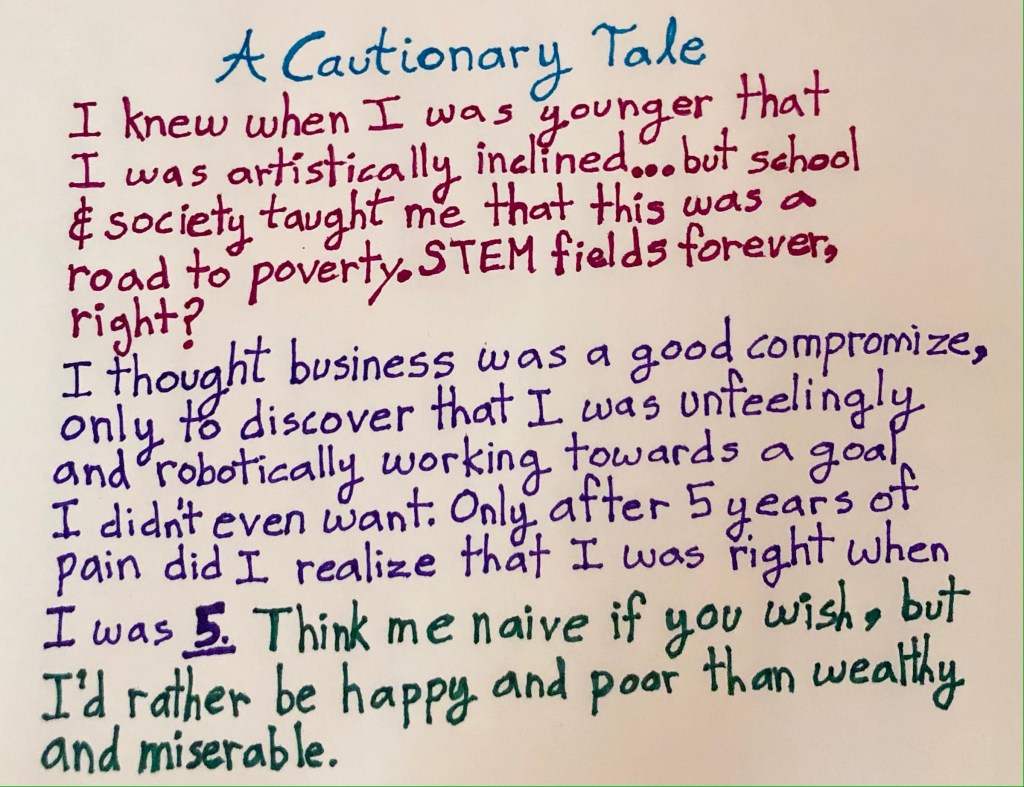 A Cautionary Tale
I knew when I was younger that
I was artistically inclined...but school
& society taught me that this was a
road to poverty. STEM fields forever,
right?
I thought business was a good compromize,
only to discover that I was unfeelingly
and robotically working towards a goal
I didn't even want. Only after 5 years of
pain did I realize that I was right when
I was 5. Think me naive if you wish, but
I'd rather be happy and poor than wealthy
and miserable.